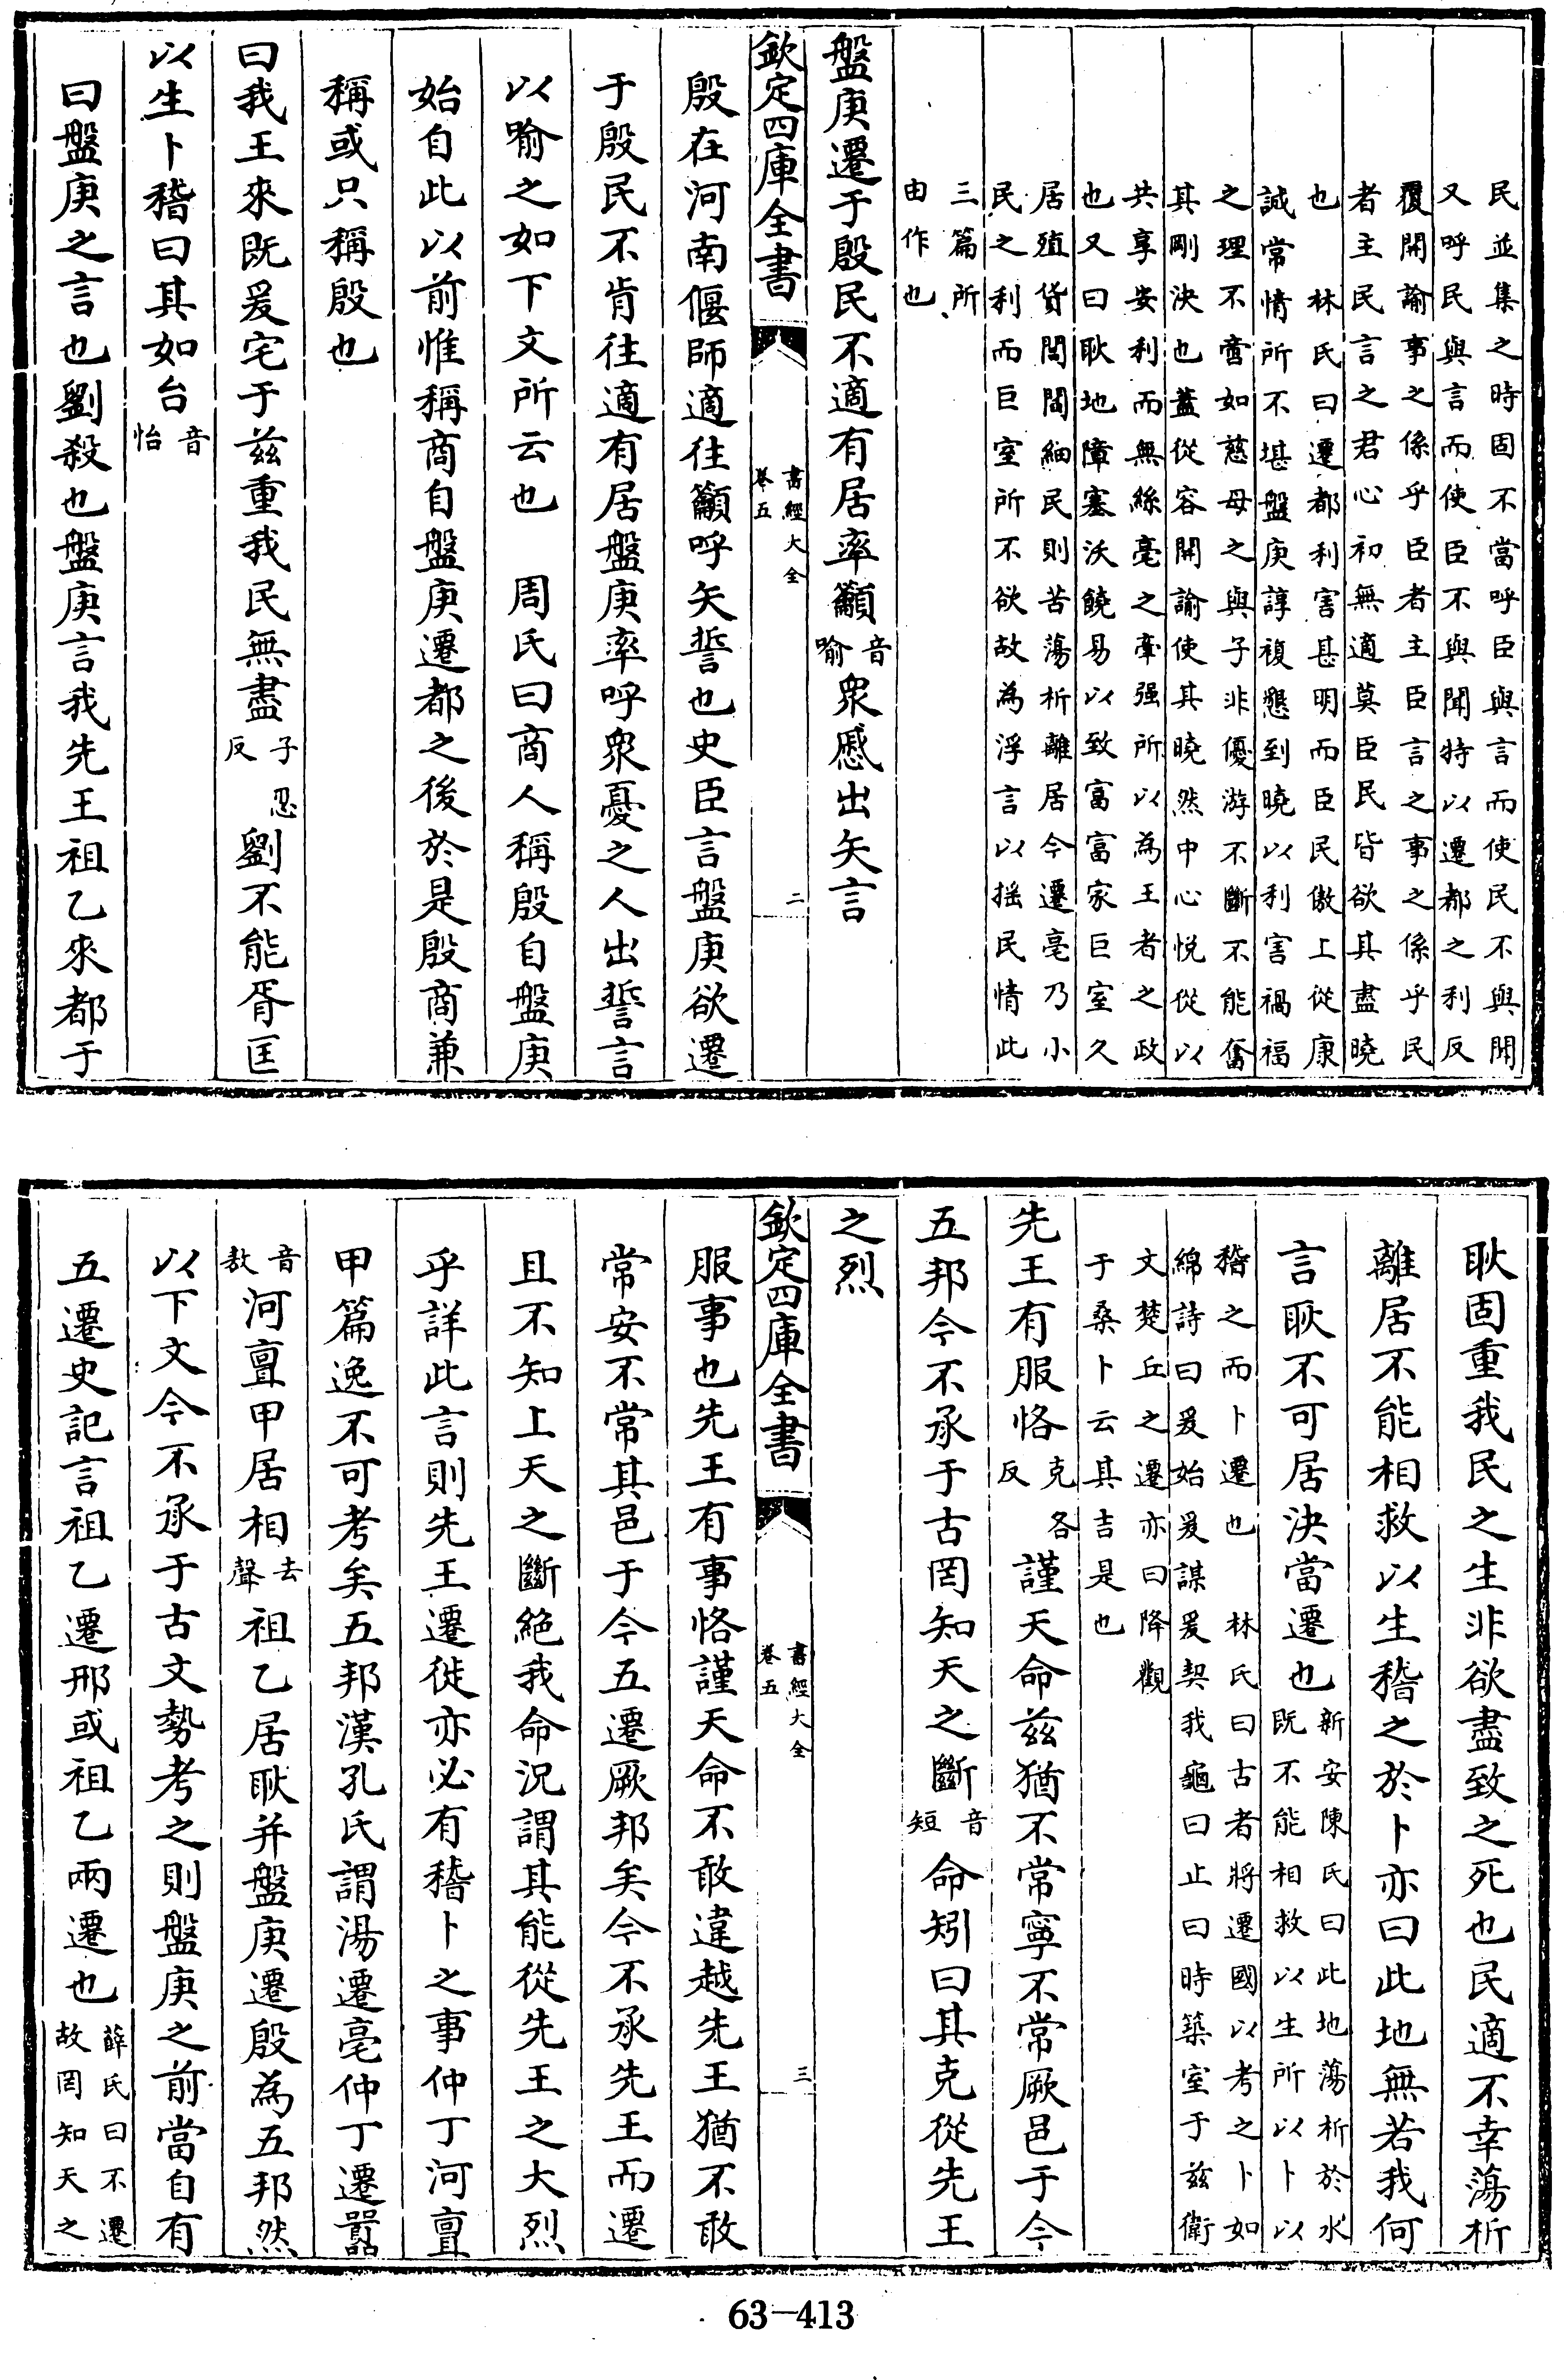 民並集之時固不當呼臣與言而使民不與聞
又呼民與言而使臣不與聞特以遷都之利反
覆開諭事之係乎臣者主臣言之事之係乎民
者主民言之君心初無適莫臣民皆欲其盡曉
也　林氏曰遷都利害甚明而臣民傲上從康
誠常情所不堪盤庚諄複懇到曉以利害禍福
之理不啻如慈母之與子非優游不斷不能奮
其剛決也蓋從容開諭使其曉然中心悅從以
共享安利而無絲毫之牽强所以為王者之政
也又曰耿地障塞沃饒易以致富富家巨室久
居殖貨閭閻細民則苦蕩析離居今遷亳乃小
民之利而巨室所不欲故為浮言以搖民情此
三篇所
由作也
盤庚遷于殷民不適有居率籲音喻衆慼出矢言
欽定四庫全書
書經大全
卷五
二
殷在河南偃師適往籲呼矢誓也史臣言盤庚欲遷
于殷民不肯往適有居盤庚率呼衆憂之人出誓言
以喻之如下文所云也　周氏曰商人稱殷自盤庚
始自此以前惟稱商自盤庚遷都之後於是殷商兼
稱或只稱殷也
曰我王來既爰宅于茲重我民無盡子忍反劉不能胥匡
以生卜稽曰其如台音怡
曰盤庚之言也劉殺也盤庚言我先王祖乙來都于
耿固重我民之生非欲盡致之死也民適不幸蕩析
離居不能相救以生稽之於卜亦曰此地無若我何
言耿不可居決當遷也新安陳氏曰此地蕩析於水
既不能相救以生所以卜以
稽之而卜遷也　林氏曰古者將遷國以考之卜如
綿詩曰爰始爰謀爰契我龜曰止曰時築室于茲衛
文楚丘之遷亦曰降觀
于桑卜云其吉是也
先王有服恪克各反謹天命茲猶不常寧不常厥邑于今
五邦今不承于古罔知天之斷音短命矧曰其克從先王
之烈
欽定四庫全書
書經大全
卷五
三
服事也先王有事恪謹天命不敢違越先王猶不敢
常安不常其邑于今五遷厥邦矣今不承先王而遷
且不知上天之斷絕我命況謂其能從先王之大烈
乎詳此言則先王遷徙亦必有稽卜之事仲丁河亶
甲篇逸不可考矣五邦漢孔氏謂湯遷亳仲丁遷嚻
音敖河亶甲居相去聲祖乙居耿并盤庚遷殷為五邦然
以下文今不承于古文勢考之則盤庚之前當自有
五遷史記言祖乙遷邢或祖乙兩遷也薛氏曰不遷
故罔知天之
63—413